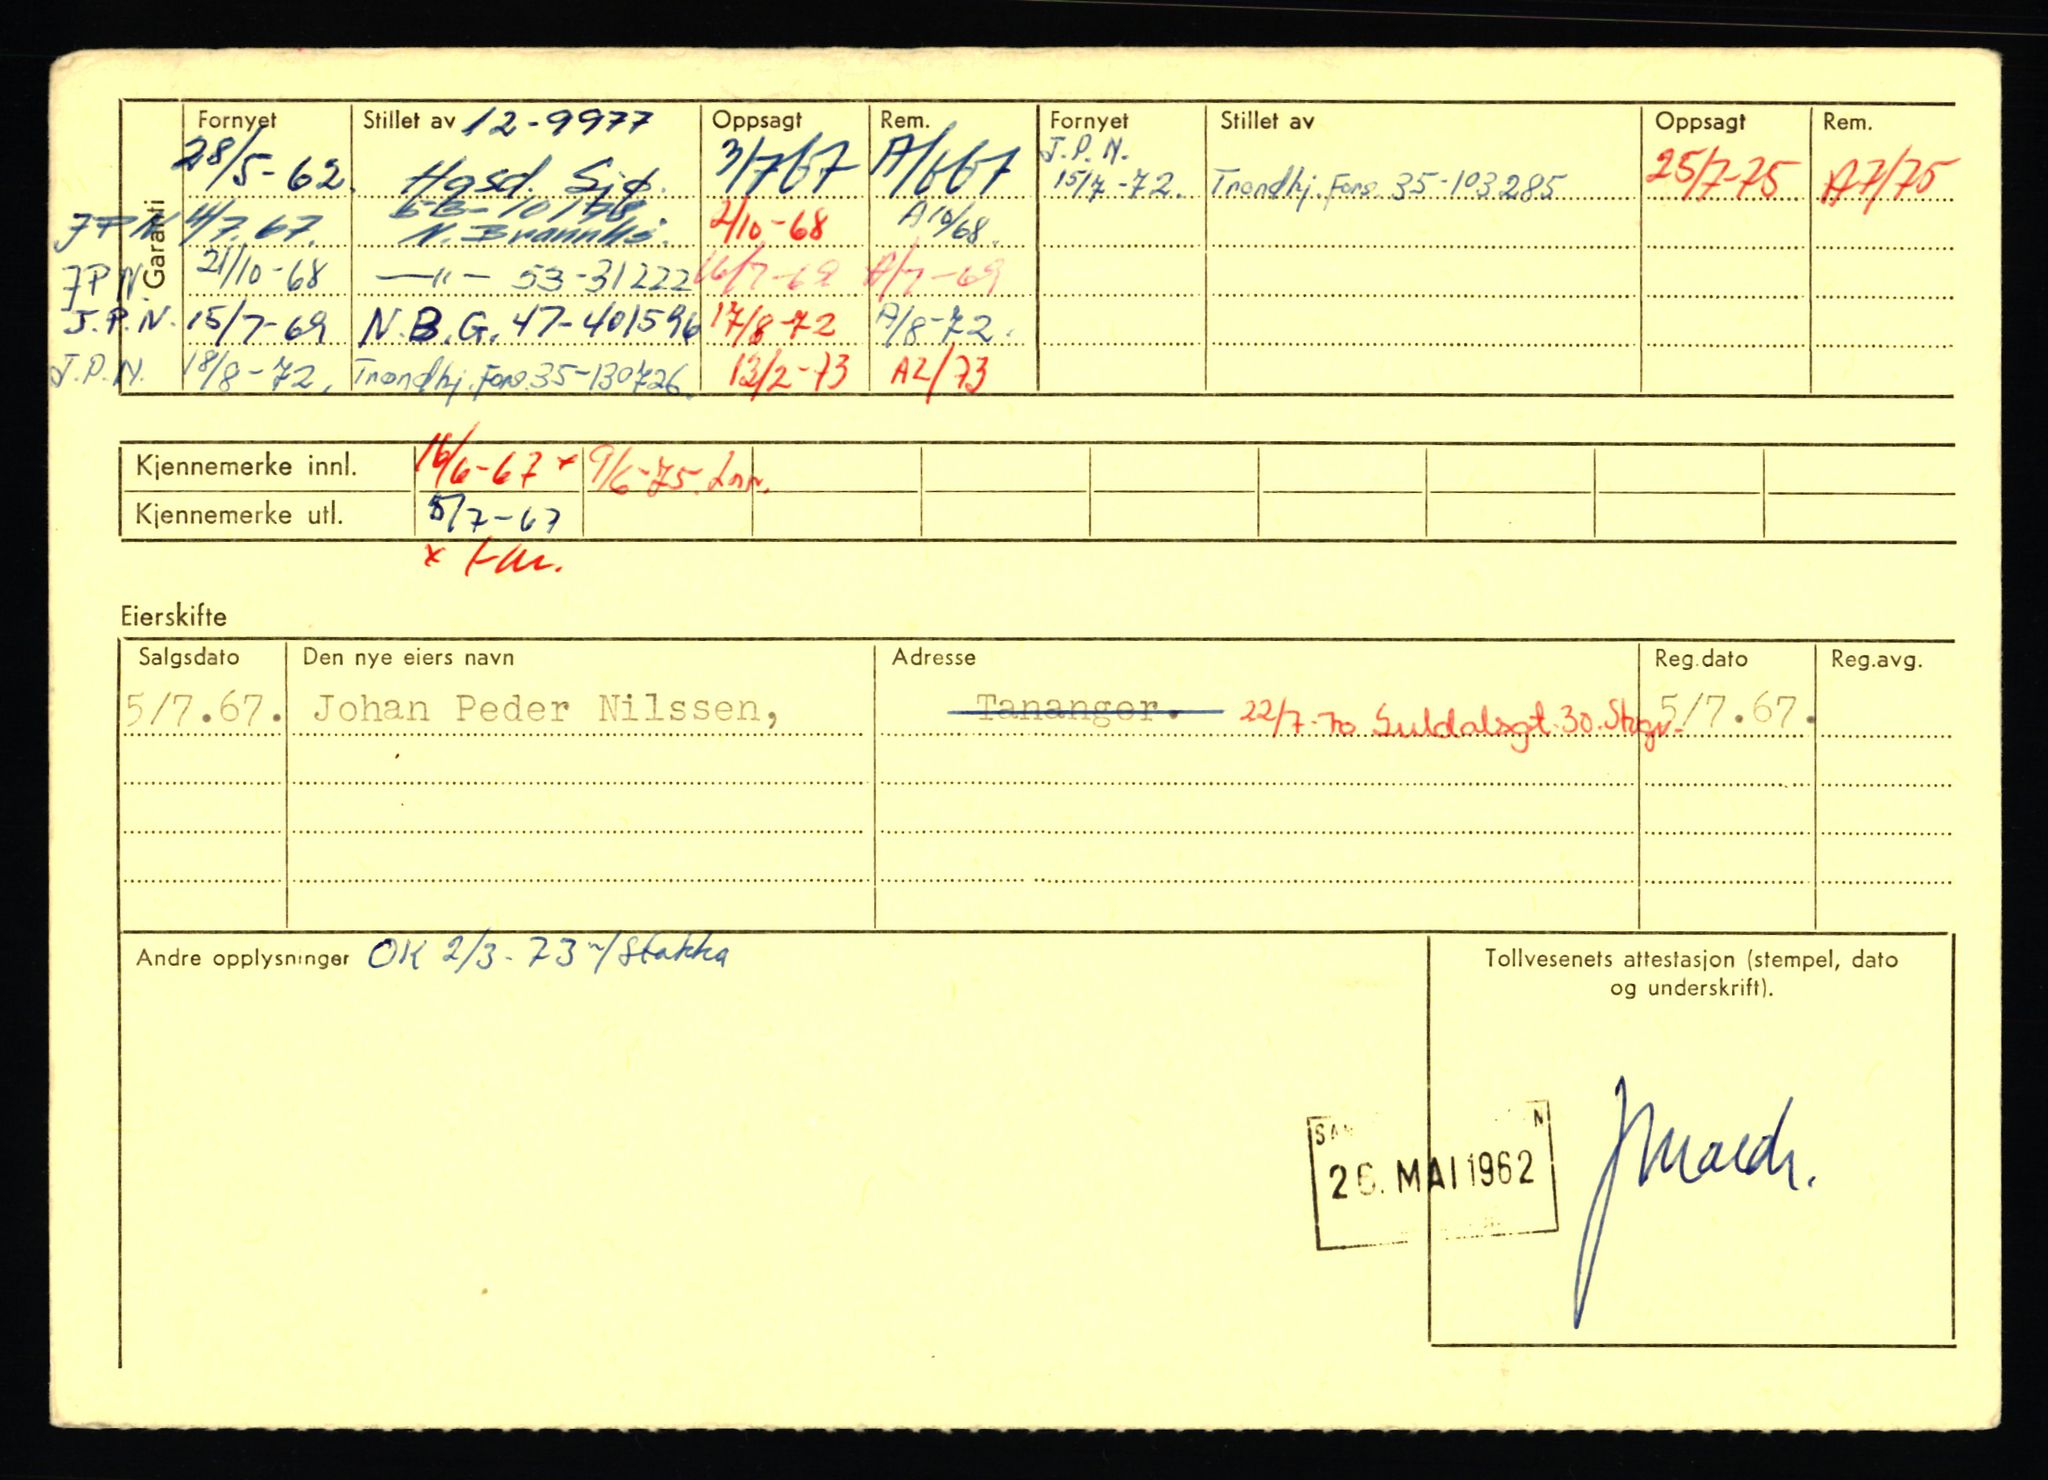 Garanti
Fornyet Stillet av 12-9977 Oppsagt Rem. Fornyet Stillet av Oppsagt Rem.
28/5-62. Hgsd. Sjø. 3/7 67 A/667 J.P.N. 15/7-72. Trondhj. Fors. 35-103285 25/7-75 A7/75
JPN 4/7.67. N. Brannks. 2/10-68 A10/68.
JPN. 21/10-68 —"— 53-31222 16/7-69 A/7-69
J.P.N. 15/7-69 N.B.G. 47-401596 17/8-72 A/8-72.
J.P.N. 18/8-72, Trondhj. Fors. 35-130726. 13/2-73 A2/73
Kjennemerke innl. 16/6-67 x 9/6-75. Inn.
Kjennemerke utl. 5/7-67
x
Eierskifte
Salgsdato Den nye eiers navn Adresse Reg.dato Reg.avg.
5/7.67. Johan Peder Nilssen, Tananger. 22/7-70 Suldalsgt. 30. Stvgr. 5/7.67.
Andre opplysninger OK 2/3-73 Stakka
Tollvesenets attestasjon (stempel, dato
og underskrift).
26. MAI 1962